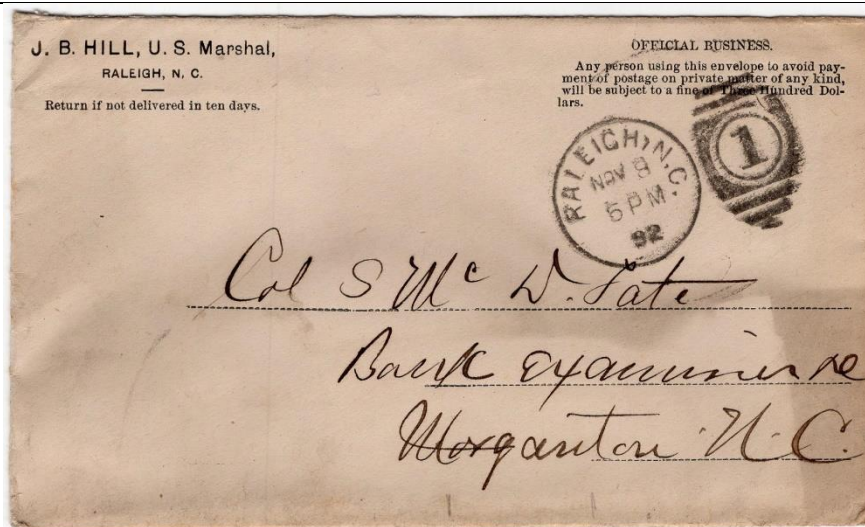 J. B. HILL, U. S. Marshal,
RALEIGH, N. C.
Return if not delivered in ten days.
OFFICIAL BUSINESS.
Any person using this envelope to avoid pay-
ment of postage on private matter of any kind,
will be subject to a fine of Three Hundred Dol-
lars.
RALEIGH, N.C.
NOV 8
5 PM
92
1
Col S Mc D. Tate
Bank Examiner
Morganton N. C.